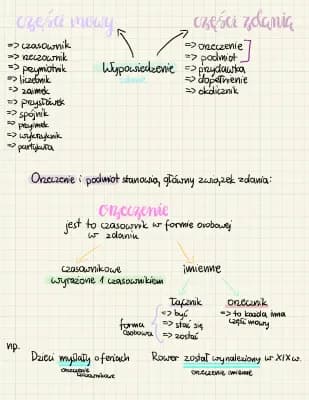 części mowy
części zdania
=> czasownik
=> rzeczownik
=> przymiotnik
=> liczebnik
=> zaimek
=> przysłówek
=> spójnik
=> przyimek
=> wykrzyknik
=> partykuła
Wypowiedzenie
zdanie
=> orzeczenie
=> podmiot
=> przydawka
=> dopełnienie
=> okolicznik
Orzeczenie i podmiot stanowią główny związek zdania:
orzeczenie
jest to czasownik w formie osobowej
w zdaniu
czasownikowe
wyrażone 1 czasownikiem
imienne
łącznik
forma
osobowa
=> być
=> stać się
=> zostać
orzecznik
=> to każda inna
część mowy
np.
Dzieci myślały o feriach
orzeczenie
czasownikowe
Rower został wynaleziony w XIX w.
orzeczenie imienne